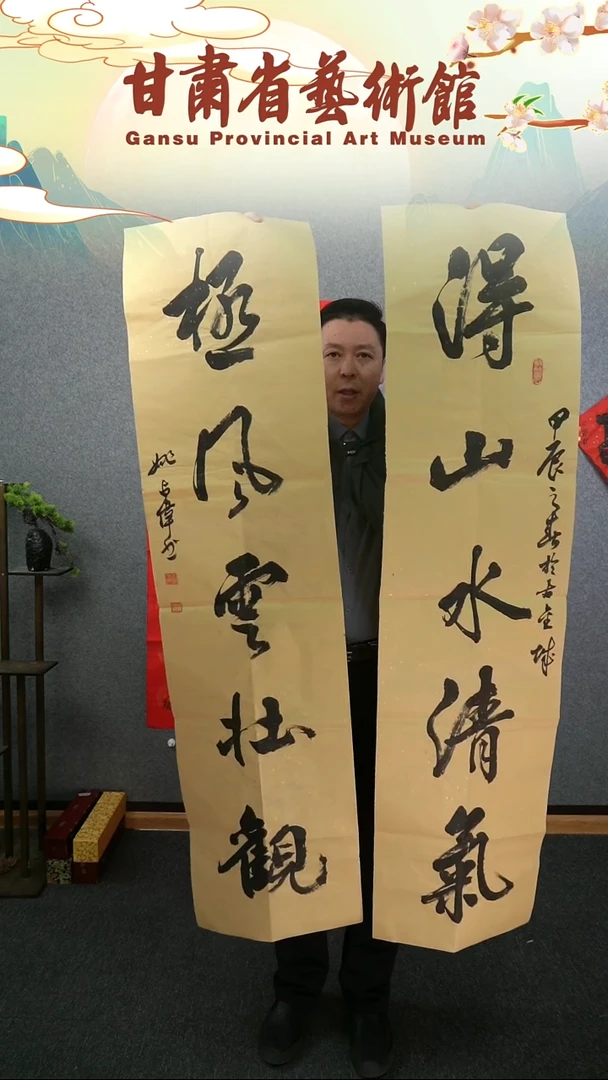 甘肅省藝術館
Gansu Provincial Art Museum
得山水清氣
甲辰之春於古金城
極風雲壯觀
姚偉书